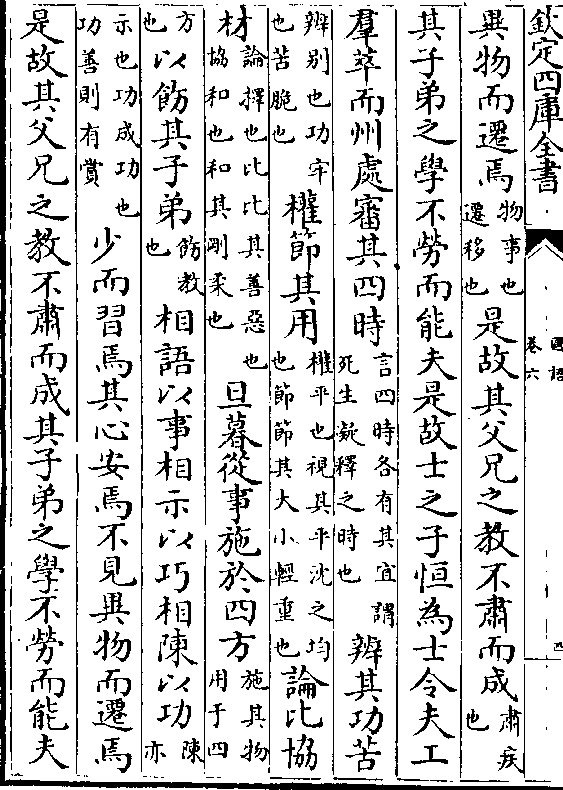 欽定四庫全書
國語
卷六
四
異物而遷焉物事也遷移也是故其父兄之教不肅而成肅疾也
其子弟之學不勞而能夫是故士之子恒為士令夫工
羣萃而州處審其四時言四時各有其宜謂死生凝釋之時也辨其功苦
辨别也功牢也苦脆也權節其用權平也視其平沈之均也節節其大小輕重也論比協
材論擇也比比其善惡也協和也和其剛柔也旦暮從事施於四方施其物用于四
方也以飭其子弟飭教也相語以事相示以巧相陳以功陳亦
示也功成功也功善則有賞少而習焉其心安焉不見異物而遷焉
是故其父兄之教不肅而成其子弟之學不勞而能夫